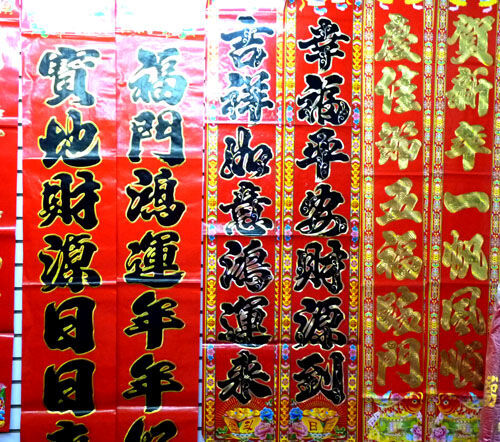 賀新年一帆風順
慶佳節五福臨門
幸福平安財源到
吉祥如意鴻運來
福門鴻運年年
寶地財源日日